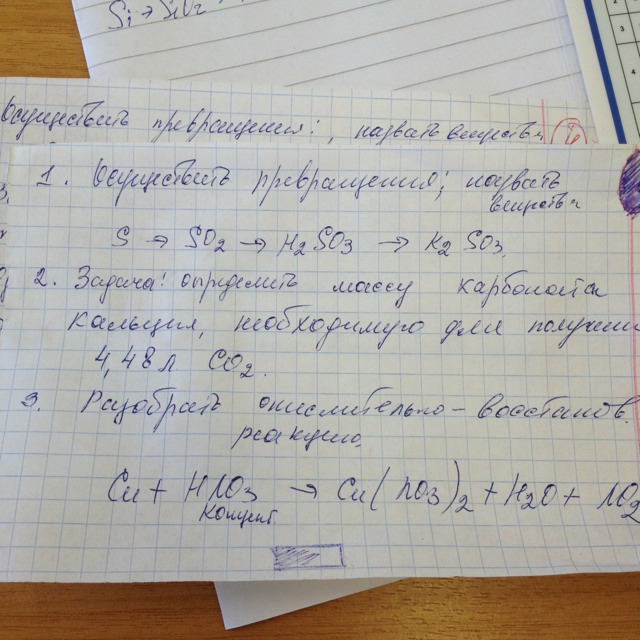 Si → SiO2
Осуществить превращения:, назвать вещества
1. Осуществить превращения; назвать
вещества
S → SO2 → H2SO3 → K2SO3.
2. Задача: определить массу карбоната
кальция, необходимую для получени
4,48 л CO2.
3. Разобрать окислительно-восстанов.
реакцию.
Cu + HNO3 → Cu(NO3)2 + H2O + NO2
конц